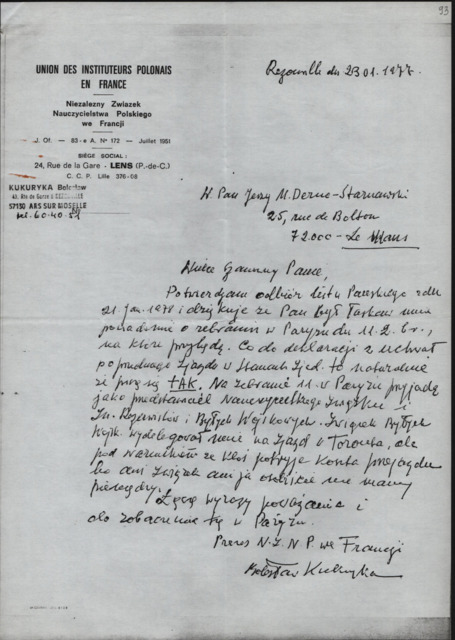 93
UNION DES INSTITUTEURS POLONAIS
EN FRANCE
Niezalezny Zwiazek
Nauczycielstwa Polskiego
we Francji
J. Of. — 83-e A. Nº 172 — Juillet 1951
SIÈGE SOCIAL :
24, Rue de la Gare - LENS (P.-de-C.)
C. C. P. Lille 376-08
KUKURYKA Boleslaw
57130 ARS SUR MOSELLE
tel. 60.40.51
Rezonville du 23 01. 1978.
W. Pan Jerzy M. Derno-Starnawski
25, rue de Bolton
72.000 - Le Mans
Wielce Szanowny Panie,
Potwierdzam odbiór listu Pańskiego z dn
21. Jan. 1978 i dziękuję że Pan był łaskaw mnie
powiadomić o zebraniu w Paryżu dn 11.2. b.r.,
na które przybędę. Co do deklaracji z uchwał
poprzedniego Zjazdu w Stanach Zjed. to naturalnie
że piszę się TAK. Na zebranie 11. w Paryżu przyjadę
jako przedstawiciel Nauczycielskiego Związku i
Zw. Rezerwistów i Byłych Wojskowych. Związek Byłych
Wojsk. wydelegował mnie na Zjazd w Toronto, ale
pod warunkiem że ktoś pokryje koszta przejazdu
bo ani Związek ani ja osobiście nie mamy
pieniędzy.
Łączę wyrazy poważania i
do zobaczenia się w Paryżu.
Prezes N.Z.N.P. we Francji
Bolesław Kukuryka